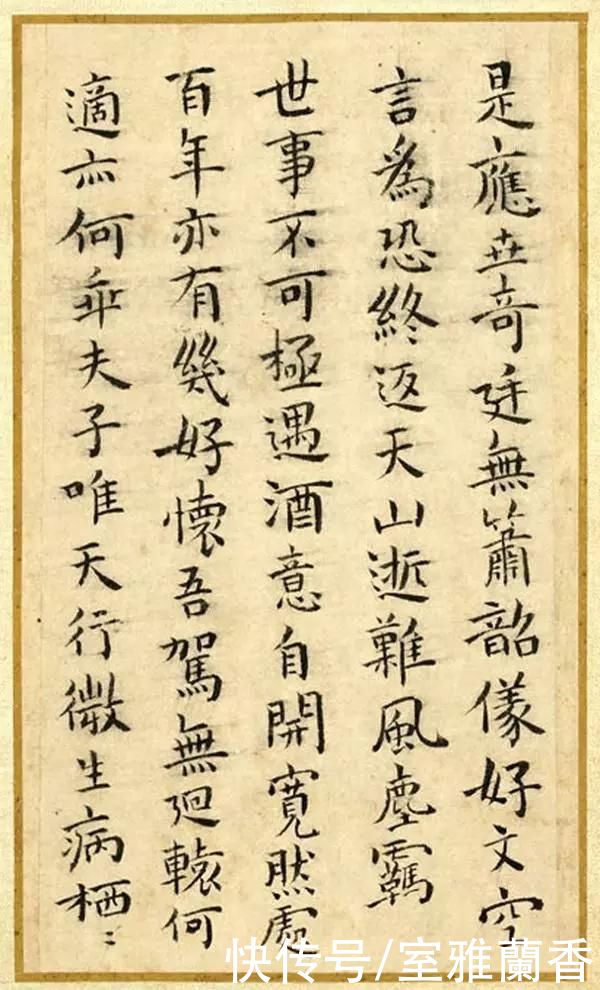 是應世奇廷無簫韶儀好文空
言爲恐終返天山逝難風塵羈
世事不可極遇酒意自開寬然處
百年亦有幾好懷吾駕無迴轅何
適亦何乖夫子唯天行微生病栖〻
快传号/室雅蘭香